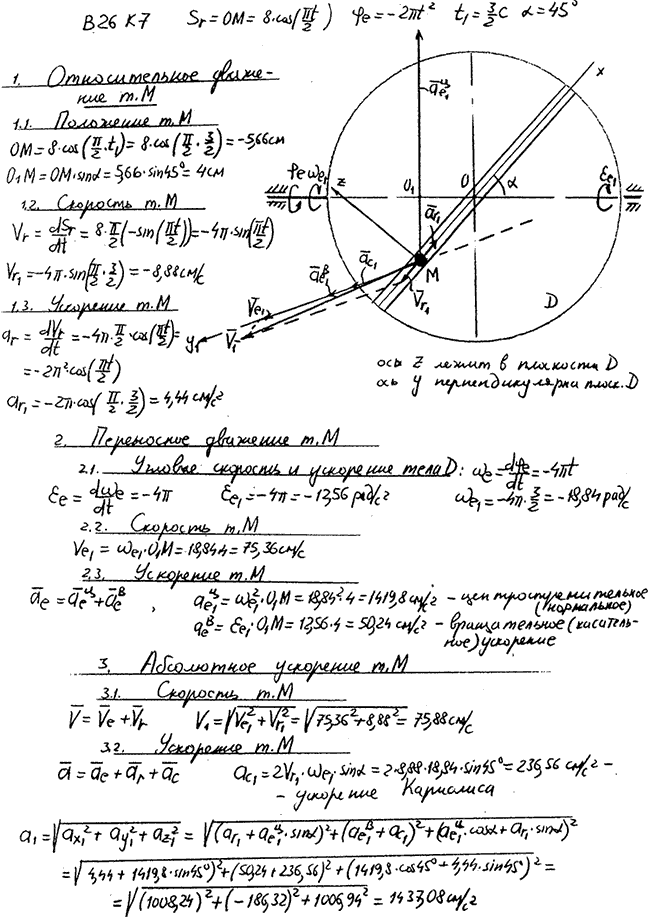 В 26 К7 Sr = OM = 8·cos(πt/2) φe = -2πt² t₁ = 3/2 c α = 45°
1. Относительное движе-
ние т. М
1.1. Положение т. М
OM = 8·cos(π/2·t₁) = 8·cos(π/2·3/2) = -5,66 см
O₁M = OM·sinα = 5,66·sin45° = 4 см
1.2. Скорость т. М
Vr = dSr/dt = 8·π/2(-sin(πt/2)) = -4π·sin(πt/2)
Vr₁ = -4π·sin(π/2·3/2) = -8,88 см/с
1.3. Ускорение т. М
ar = dVr/dt = -4π·π/2·cos(πt/2) =
= -2π²cos(πt/2)
ar₁ = -2π·cos(π/2·3/2) = 4,44 см/с²
āe₁ц
x
φe ωe₁
z
O₁
O
α
εe₁
ār₁
āeв
āc₁
M
V̄e₁
V̄r₁
y₁
V̄₁
D
ось z лежит в плоскости D
ось y перпендикулярна плоск. D
2. Переносное движение т. М
2.1. Угловые скорость и ускорение тела D: ωe = dφe/dt = -4πt
εe = dωe/dt = -4π εe₁ = -4π = -12,56 рад/с² ωe₁ = -4π·3/2 = -18,84 рад/с
2.2. Скорость т. М
Ve₁ = ωe₁·O₁M = 18,84·4 = 75,36 см/с
2.3. Ускорение т. М
āe = āeц + āeв , ae₁ц = ωe₁²·O₁M = 18,84²·4 = 1419,8 см/с² - центростремительное
(нормальное)
aeв = εe₁·O₁M = 12,56·4 = 50,24 см/с² - вращательное (касатель-
ное) ускорение
3. Абсолютное ускорение т. М
3.1. Скорость т. М
V̄ = V̄e + V̄r V₁ = √(Ve₁² + Vr₁²) = √(75,36² + 8,88²) = 75,88 см/с
3.2. Ускорение т. М
ā = āe + ār + āc ac₁ = 2Vr₁·ωe₁·sinα = 2·8,88·18,84·sin45° = 236,56 см/с² -
- ускорение Кариолиса
a₁ = √(ax₁² + ay₁² + az₁²) = √((ar₁ + ae₁ц·sinα)² + (ae₁в + ac₁)² + (ae₁ц·cosα + ar₁·sinα)²)
= √(4,44 + 1419,8·sin45°)² + (50,24 + 236,56)² + (1419,8·cos45° + 4,44·sin45°)² =
= √((1008,24)² + (-186,32)² + 1006,94²) = 1437,08 см/с²